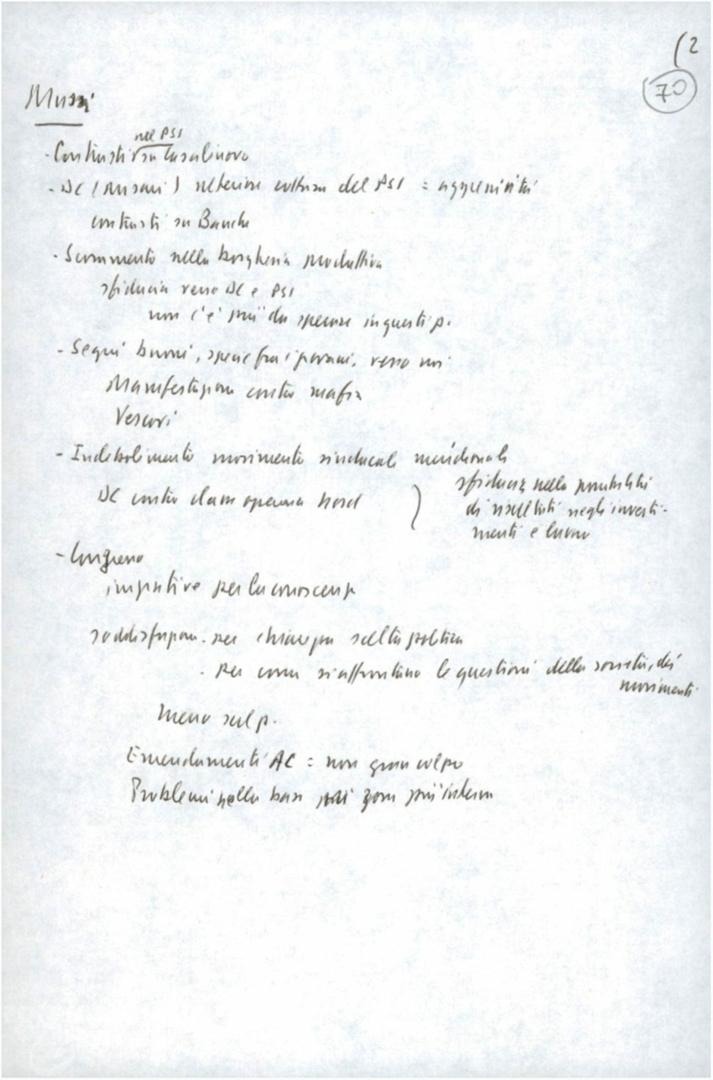 (2
70
Mussi
nel PSI
- Contrasti su Casalinovo
- DC (Misasi) ulteriore cattura del PSI = aggressività
contrasti su Banche
- Scoramento nella borghesia produttiva
sfiducia verso DC e PSI
non c'è più da sperare in questi p.
- Segni buoni, specie fra i giovani, verso noi
Manifestazioni contro mafia
Vescovi
- Indebolimento movimento sindacale meridionale
DC contro classe operaia Nord
sfiducia nella possibilità
di risultati negli investi-
menti e lavoro
- Congresso
per la conoscenza
soddisfazione. per chiarezza scelta politica
. per come si affrontano le questioni della società, dei
movimenti
meno sul p.
Emendamenti AC = non gran colpo
Problemi nella base zone più interne